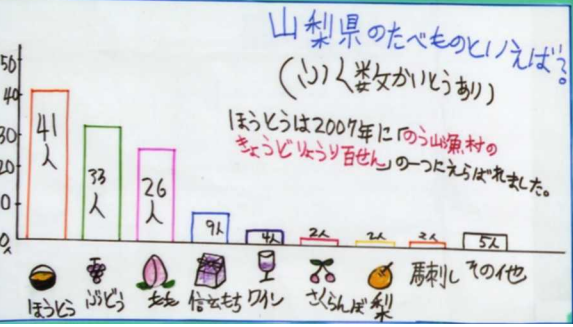 山梨県のたべものといえば?
(ふく数かいとうあり)
ほうとうは2007年に「のう山漁村の
きょうどりょうり百せん」の一つにえらばれました。
50
40
30
20
0
0人
41人
33人
26人
9人
4人
2人
2人
2人
5人
ほうとう ぶどう もも 信玄もち ワイン さくらんぼ 梨 馬刺し その他